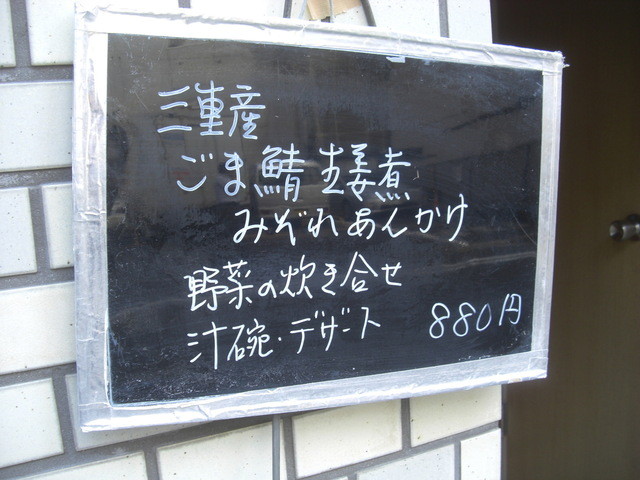 三重産
ごま鯖 生姜煮
みぞれあんかけ
野菜の炊き合せ
汁碗・デザート 880円